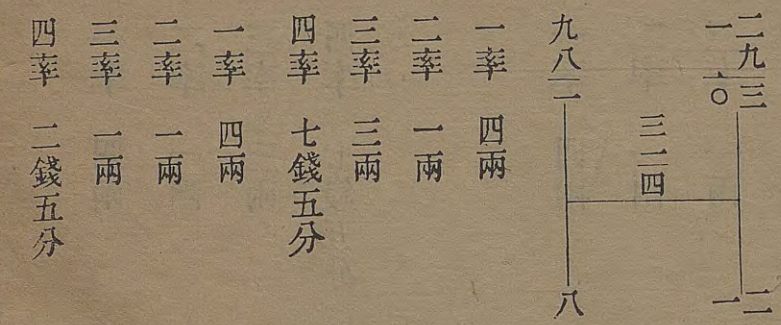 二九三 二
一〇 一
三二四
九八一 八
一率 四兩
二率 一兩
三率 三兩
四率 七錢五分
一率 四兩
二率 一兩
三率 一兩
四率 二錢五分